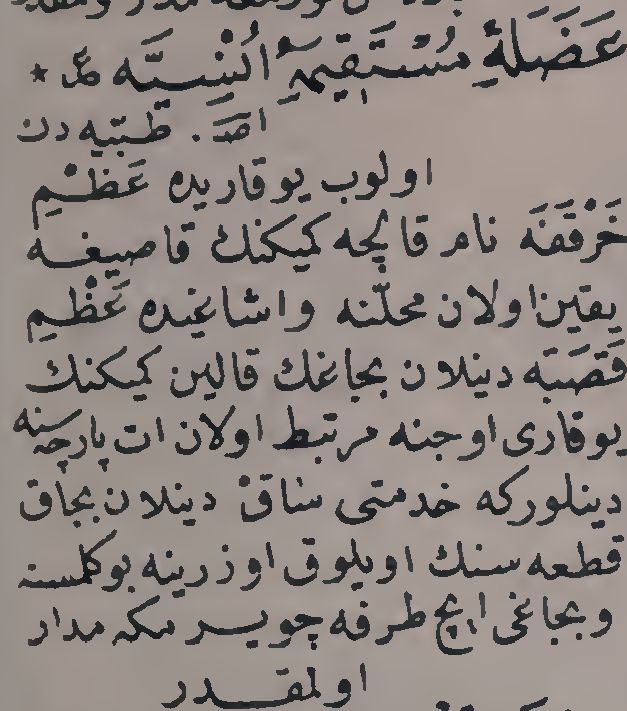 عَضَلَۀِ مُسْتَقِيمَۀِ اُنْسِيَّه ع *
اصط. طبّيه دن
اولوب يوقاريده عَظْمِ
خَرْقَفَه نام قالچه كميكنك قاصيغه
يقين اولان محلّنه واشاغيده عَظْمِ
قَصَبَه دينلان بجاغك قالين كميكنك
يوقارى اوجنه مرتبط اولان ات پارچه سنه
دينلوركه خدمتى ساق دينلان بجاق
قطعه سنك اويلوق اوزرينه بوكلمسنه
وبجاغى ايچ طرفه چويرمكه مدار
اولمقدر